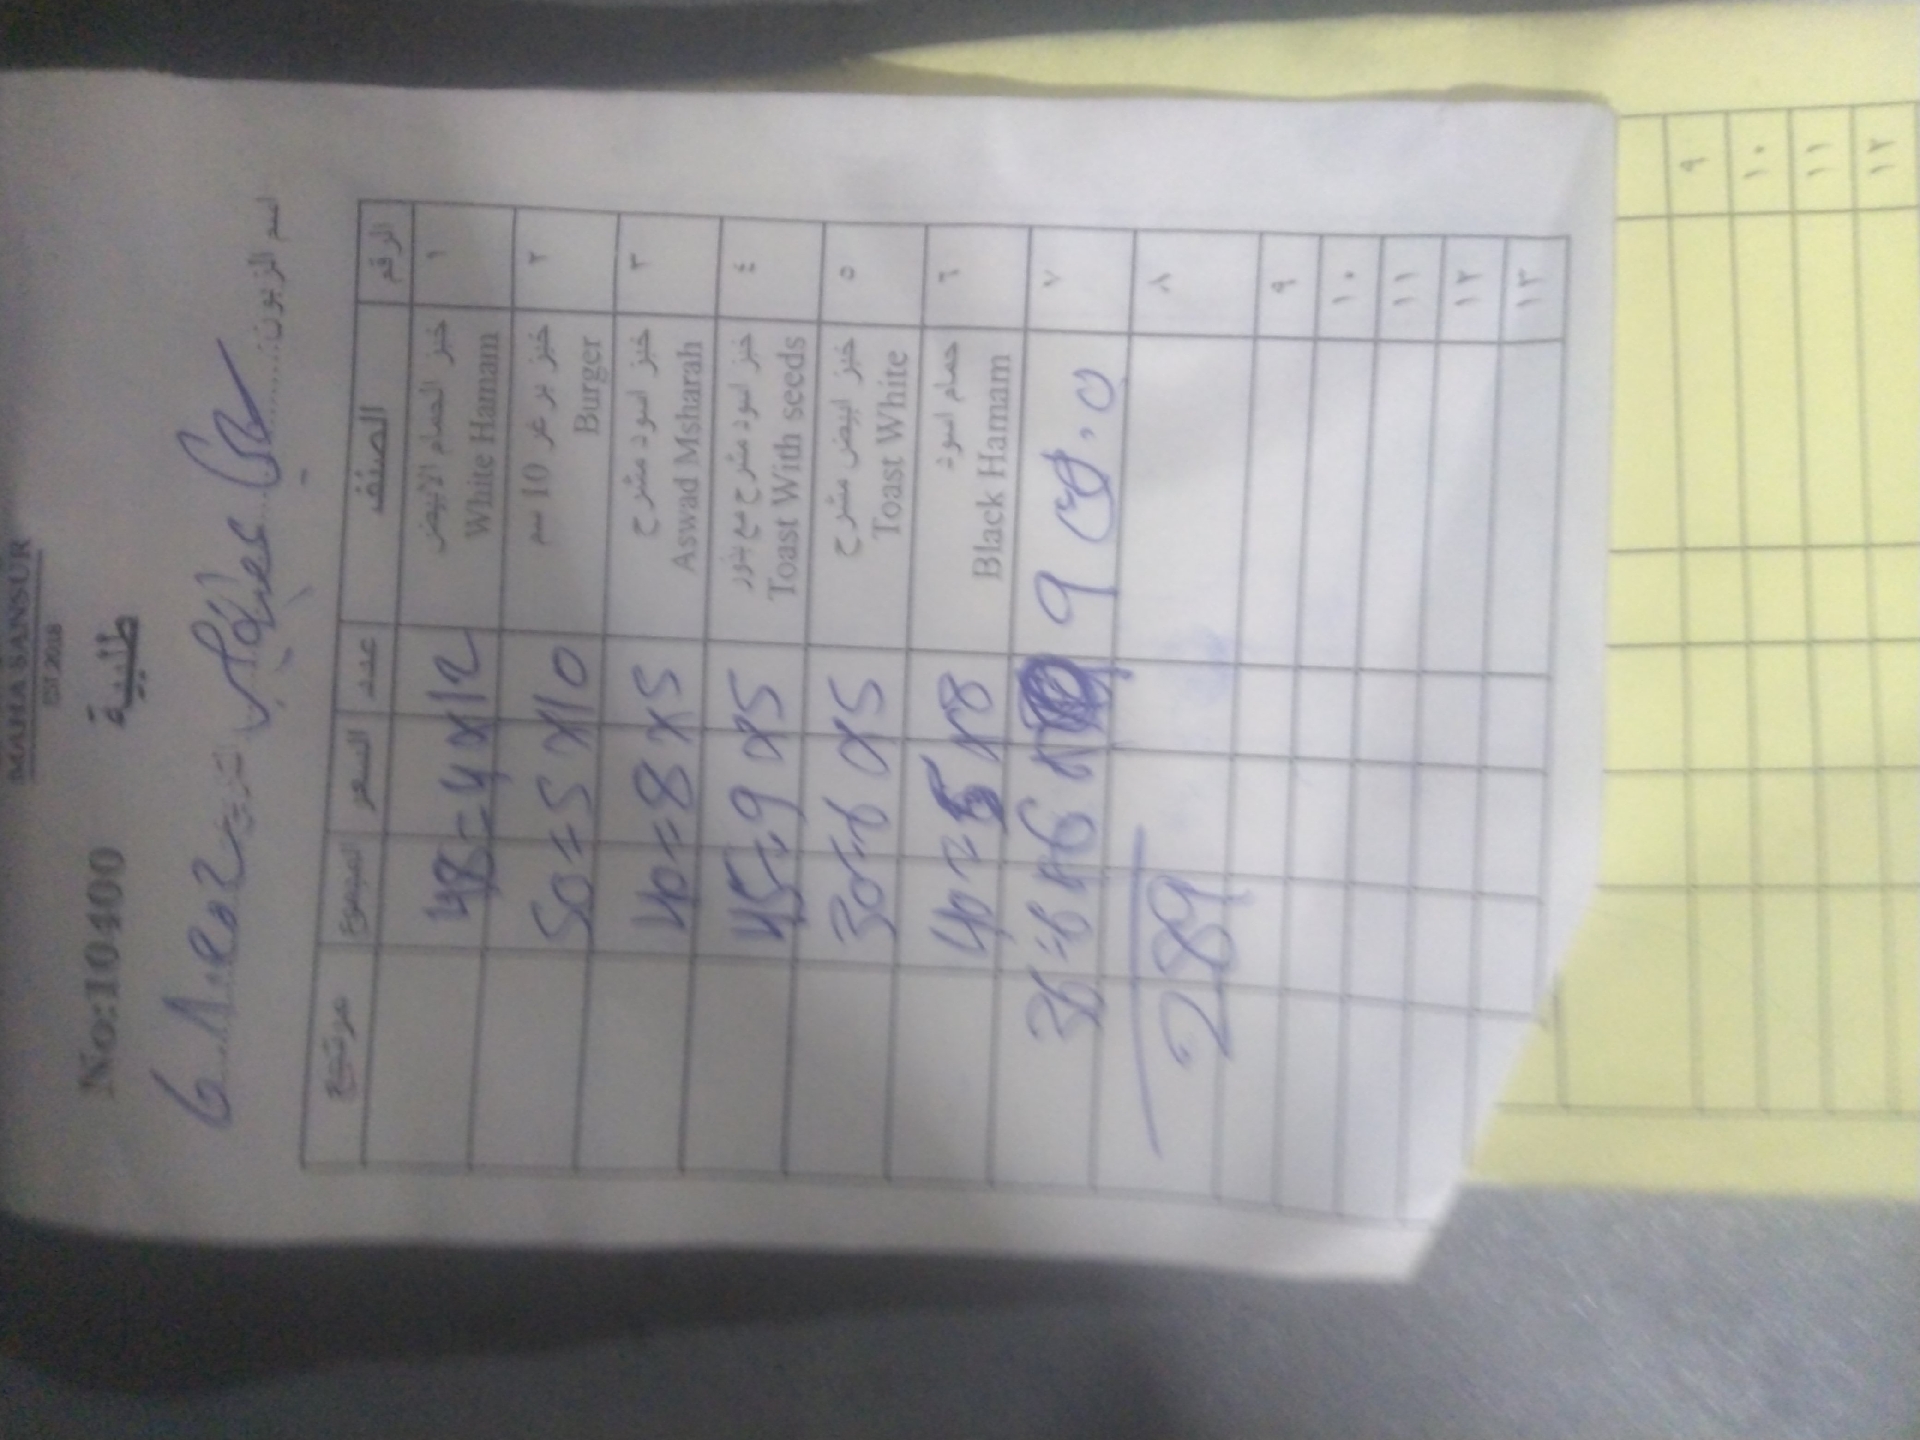 MAHA SANSUR
EST.2018
No:10400
طلبية
اسم الزبون
الرقم الصنف عدد السعر المجموع مرتجع
١ خبز الحمام الأبيض White Hamam 12 x 4 = 48
٢ خبز برغر 10 سم Burger 10 x 5 = 50
٣ خبز اسود مشرح Aswad Msharah 5 x 8 = 40
٤ خبز اسود مشرح مع بذور Toast With seeds 5 x 9 = 45
٥ خبز ابيض مشرح Toast White 5 x 6 = 30
٦ حمام اسود Black Hamam 8 x 5 = 40
٧ 36
٨ 289
٩
١٠
١١
١٢
١٣
٩
١٠
١١
١٢